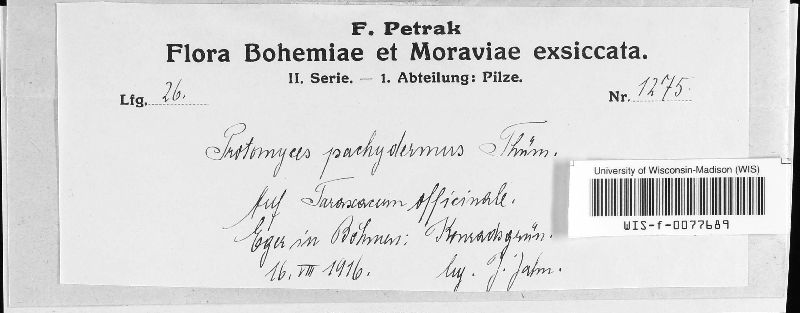 F. Petrak
Flora Bohemiae et Moraviae exsiccata.
II. Serie. — 1. Abteilung: Pilze.
Lfg. 26.
Nr. 1275.
Protomyces pachydermus Thüm.
Auf Taraxacum officinale.
Eger in Böhmen: Konradsgrün.
16. VIII 1916. leg. J. Jahn.
University of Wisconsin-Madison (WIS)
WIS-f-0077689